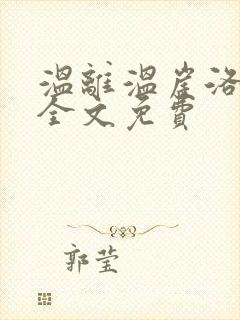 溫離溫崖洛
全文免費
郭莹